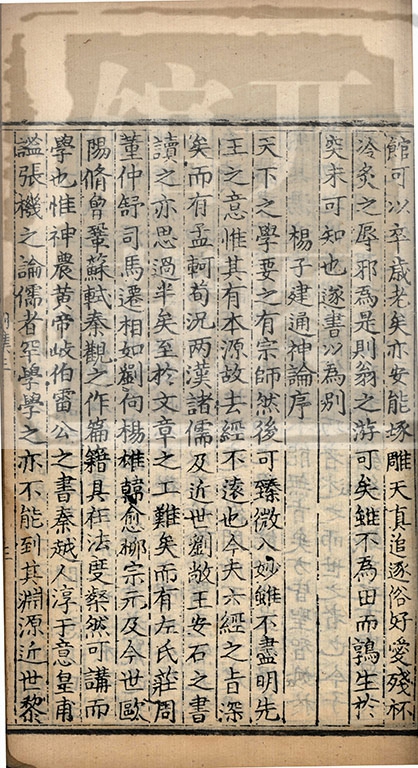 館可以卒歲老矣亦安能琢雕天真追逐俗好愛殘杯
冷炙之辱邪為是則翁之游可矣雖不為田而鶉生於
突未可知也遂書以為別
楊子建通神論序
天下之學要之有宗師然後可臻微入妙雖不盡明先
王之意惟其有本源故去經不遠也今夫六經之旨深
矣而有孟軻荀況兩漢諸儒及近世劉敞王安石之書
讀之亦思過半矣至於文章之工難矣而有左氏莊周
董仲舒司馬遷相如劉向楊雄韓愈柳宗元及今世歐
陽脩曾鞏蘇軾秦觀之作篇籍具在法度粲然可講而
學也惟神農黃帝岐伯雷公之書秦越人淳于意皇甫
謐張機之論儒者罕學學之亦不能到其淵源近世黎